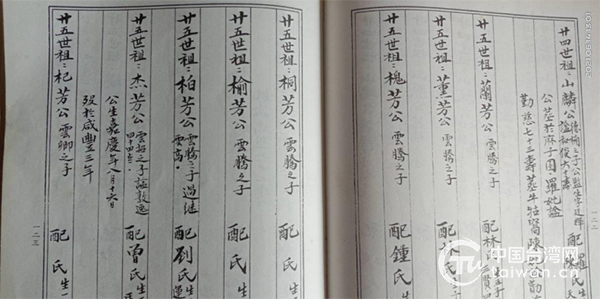 廿四世祖：山麟公
公葬於麻子園羅妣諡
勤慈七十三壽葬牛牯窩
配羅氏
廿五世祖：蘭芳公 雲騰之子 配林氏
廿五世祖：薰芳公 雲騰之子 配
廿五世祖：槐芳公 雲騰之子 配鍾氏
一二二
廿五世祖：桐芳公 雲騰之子 配 氏 生
廿五世祖：榆芳公 雲騰之子 配 氏 生
廿五世祖：柏芳公 雲騰之子過繼
雲高。
配劉氏 生
廿五世祖：杰芳公 雲 之子諡敦逸
四十四壽。
配曾氏生
公生嘉慶年八月十六日
歿於咸豐三年
廿五世祖：杞芳公 雲卿之子 配 氏 生一
一二三
中国台湾网
taiwan.cn